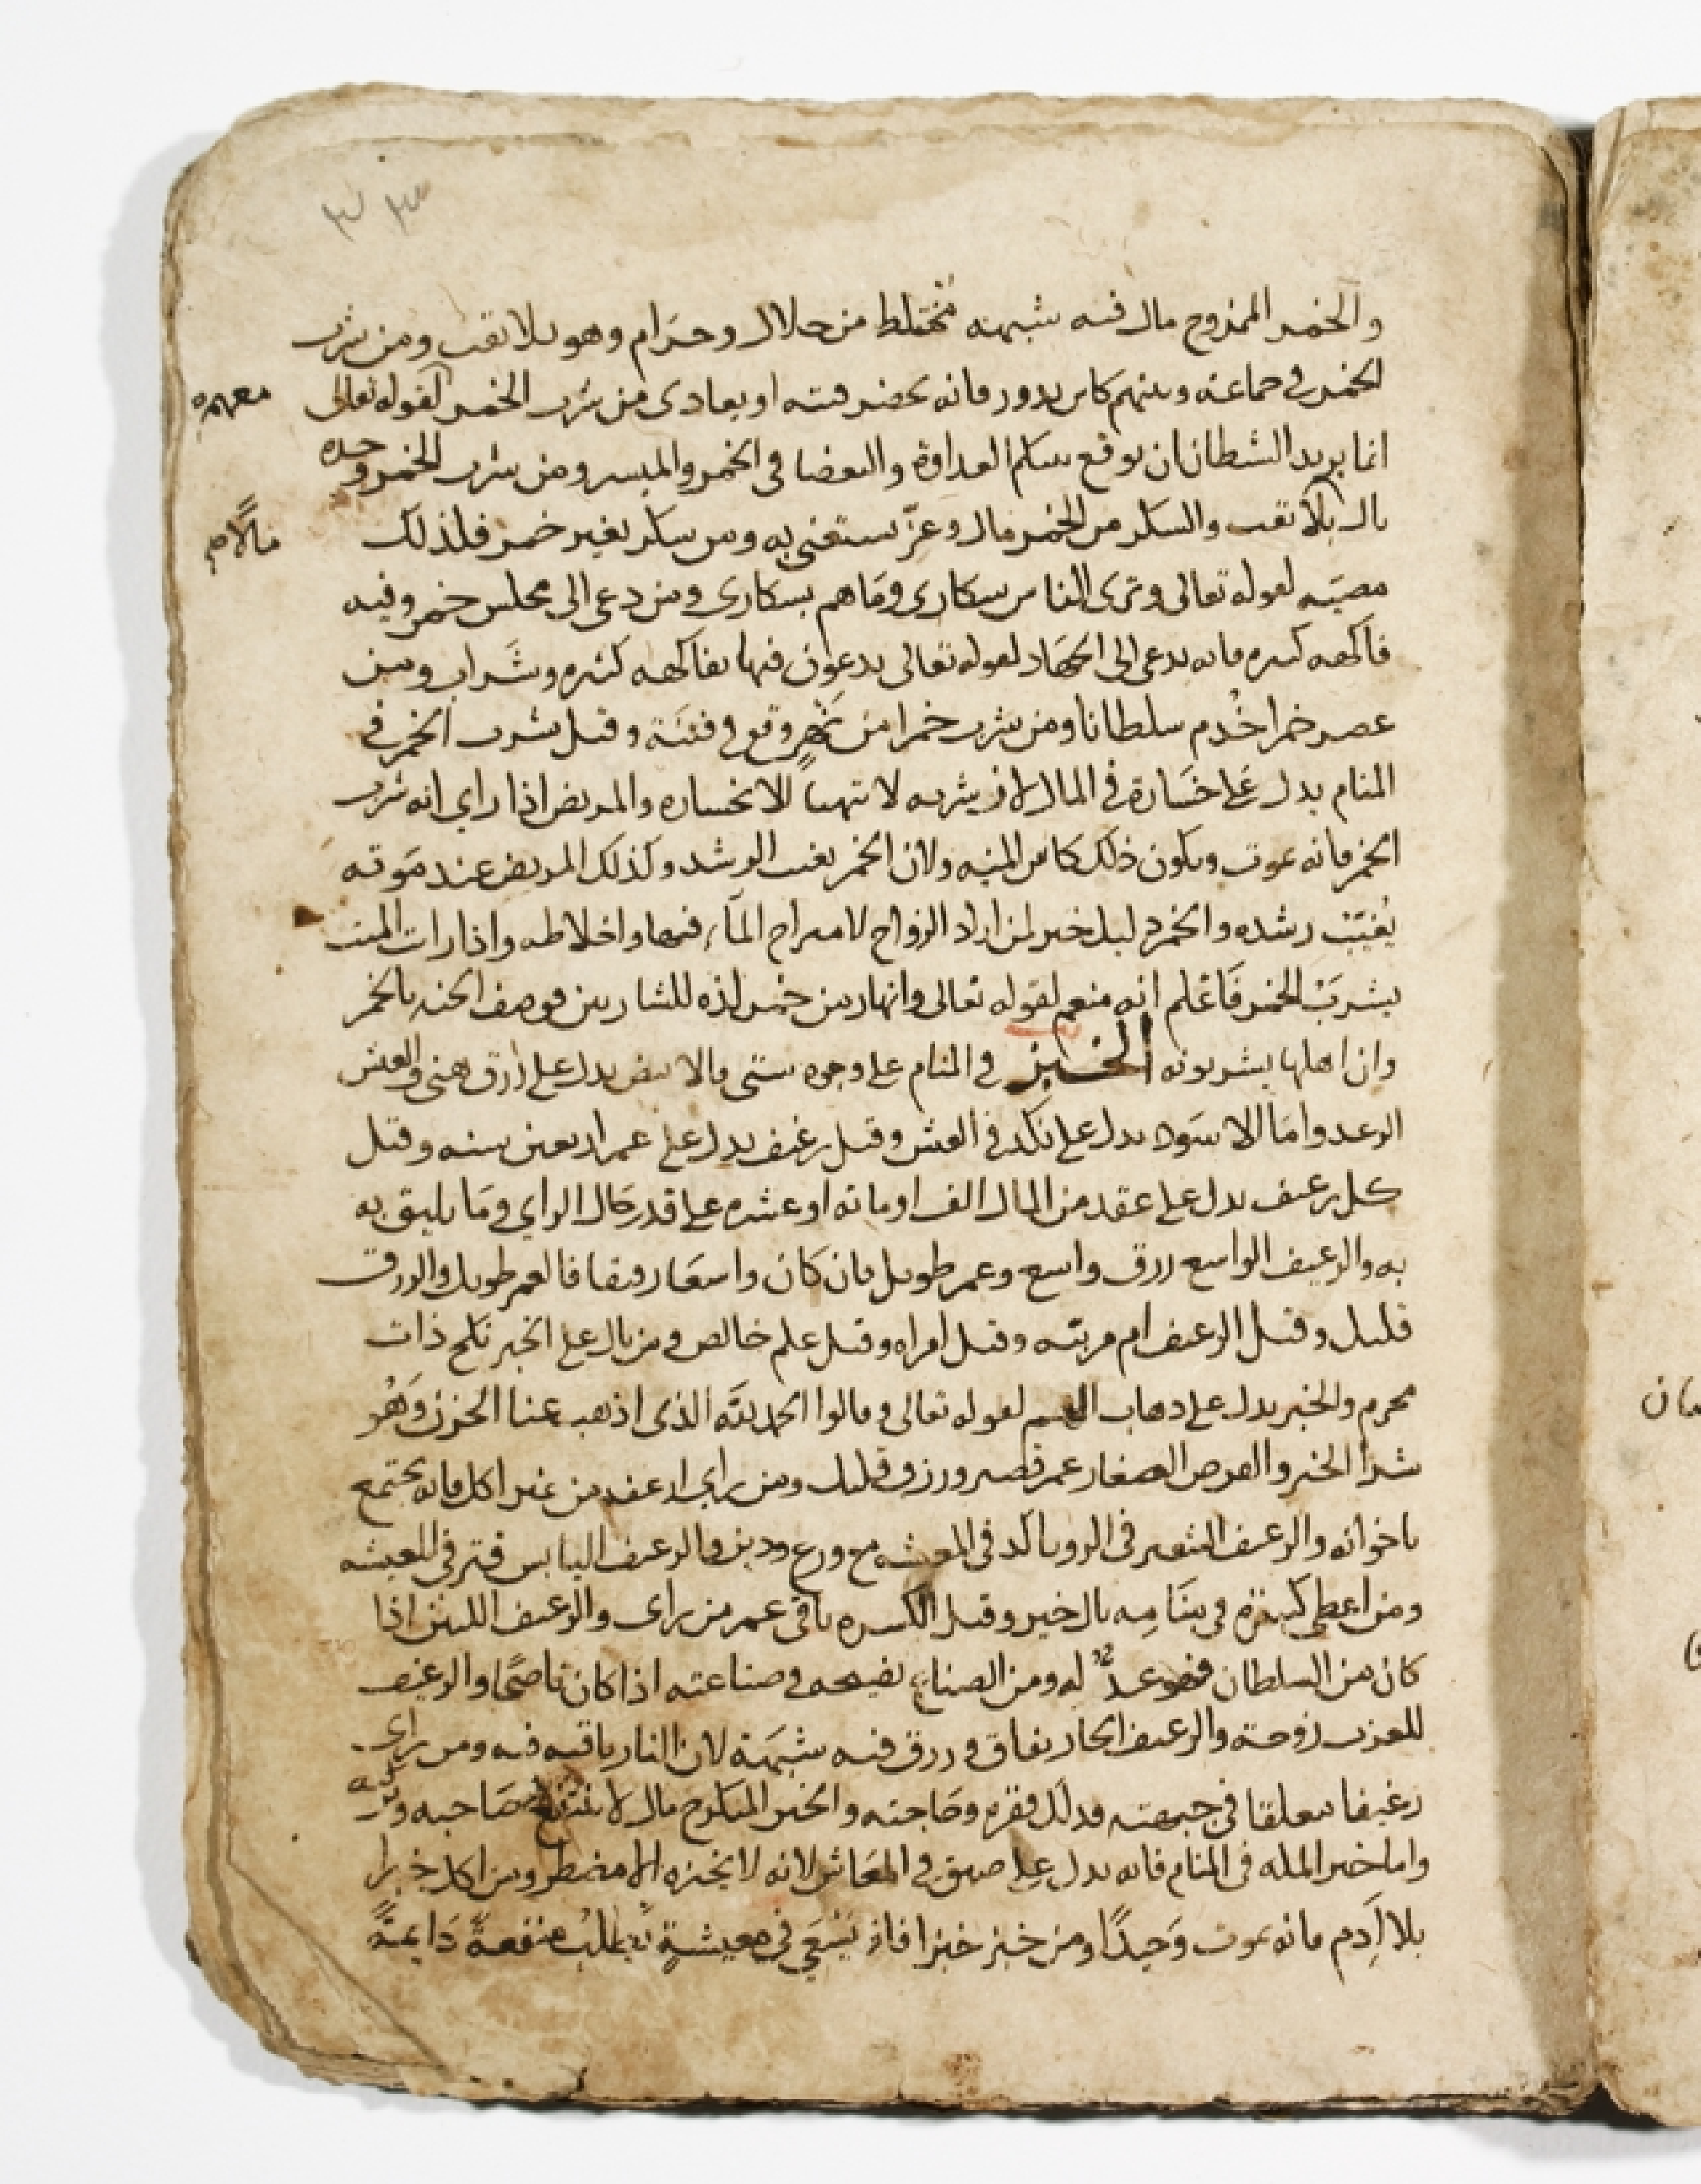 ٣٣
والخمر الممزوج مال فيه شبهة مختلط من حلال وحرام وهو بلا تعب ومن شرب
الخمر في جماعة وبينهم كاس يدور فانه يحضر فتنه او يعادى من شرب الخمر لقوله تعالى
معهم
انما يريد الشيطان ان يوقع بينكم العداوة والبغضا في الخمر والميسر ومن شرب الخمر وحده
نال بلا تعب والسكر من الخمر مال وعز يستغنى به ومن سكر بغير خمر فلذلك
مالا صح
مصيبه لقوله تعالى وترى الناس سكارى وما هم بسكارى ومن دعى الى مجلس خمر وفيه
فاكهه كثيره فانه يدعى الى الجهاد لقوله تعالى يدعون فيها بفاكهه كثيره وشراب ومن
عصر خمرا خدم سلطانا ومن شرب خمرا من نهر وقع في فتنة وقيل شرب الخمر في
المنام يدل على خسارة في المال لان شربه لا تتهيا الا بخساره والمريض اذا راي انه شرب
الخمر فانه يموت ويكون ذلك كاس المنيه ولان الخمر يغيب الرشد وكذلك المريض عند موته
يُغيّبْ رشده والخمر دليل خير لمن اراد الزواج لامتزاج المآء فيها واخلاطه واذا رات الميت
يشرب الخمر فاعلم انه منعم لقوله تعالى وانهار من خمر لذه للشاربين فوصف الجنه بالخمر
وان اهلها يشربونه الخبز في المنام على وجوه ستى فالابيض يدل على رزق هنى والعيش
الرغد واما الاسود يدل على نكد في العيش وقيل رغيف يدل على عمر اربعين سنه وقيل
كل رغيف يدل على عقد من المال الف او مائه او عشره على قدر حال الراي وما يليق به
به والرغيف الواسع رزق واسع وعمر طويل فان كان واسعا رقيقا فالعمر طويل والرزق
قليل وقيل الرغيف ام مربيه وقيل امراه وقيل علم خالص ومن بال على الخبز نكح ذات
محرم والخبز يدل على دهاب الهم لقوله تعالى وقالوا الحمد لله الذى اذهب عنا الحزن وهو
شرا الخبز والقرص الصغار عمر قصير ورزق قليل ومن راى ارغفه من غير اكل فانه يجتمع
باخوانه والرغيف الشعير في الرويا كد في المعيشه مع ورع ودين والرغيف اليابس قتر في المعيشه
ومن اعطى كسرة في منامه نال خير وقيل الكسره باقى عمر من راى والرغيف اللين اذا
كان من السلطان فهو عدل له ومن الصناع نصيحه في صناعته اذا كان ناصحًا والرغيف
للعزب زوجة والرغيف الحار نفاق ورزق فيه شبهة لان النار باقيه فيه ومن راى
رغيفا معلقا في جبهته فدلك فقره وحاجته والخبز المتكرج مال لا ينتفع صاحبه
واما خبز المله في المنام فانه يدل على ضيق في المعاش لانه لا يخبزه الا مضطر ومن اكل خبزا
بلا ادم فانه يموت وحيدًا ومن خبز خبزا فانه يسعى في معيشةٍ يطلب منفعةً دايمةً